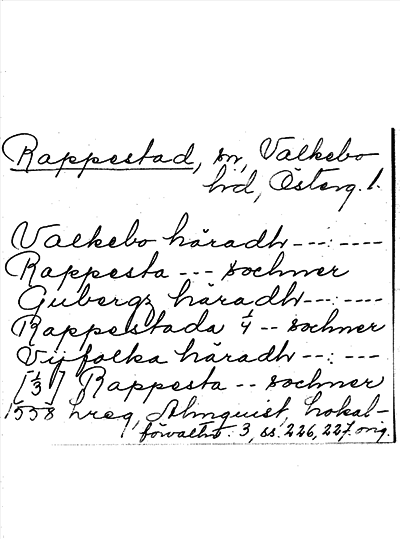 Rappestad, sn, Valkebo
hd, Österg. l.
Valkebo häradh ---:----
Rappesta --- sochner
Gubergz häradh ---:----
Rappestada 1/4 -- sochner
Vijfolka häradh --:---
[1/3] Rappesta -- sochner
1558 hreg, Almquist, Lokal-
förvaltn. 3, ss. 226, 227. orig.